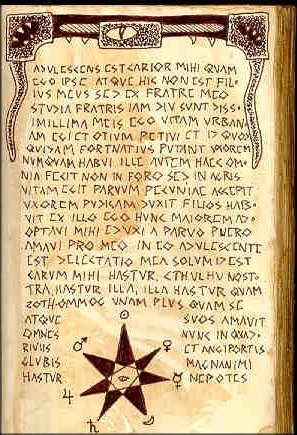 ADVLESCENS EST CARIOR MIHI QVAM
EGO IPSE ATQVE HIC NON EST FIL-
IVS MEVS SED EX FRATRE MEO
STVDIA FRATRIS IAM DIV SVNT DISS-
IMILLIMA MEIS EGO VITAM VRBAN-
AM EGI ET OTIVM PETIVI ET ID QVOD
QVIDAM FORTNATIVS PVTANT VXOREM
NVMQVAM HABVI ILLE AVTEM HAEC OM-
NIA FECIT NON IN FORO SED IN AGRIS
VITAM EGIT PARVVM PECVNIAE ACCEPIT
VXOREM PVDICAM DVXIT FILIOS HAB-
VIT EX ILLO EGO HVNC MAIOREM AD-
OPTAVI MIHI EDVXI A PARVO PVERO
AMAVI PRO MEO IN EO ADVLESCENTE
EST DELECTATIO MEA SOLVM ID EST
CARVM MIHI HASTVR, CTHVLHV NOST-
TRA, HASTVR ILLA, ILLA HASTVR QVAM
ZOTH-OMMOG VNAM PLVS QVAM SE
ATQVE SVOS AMAVIT
OMNES NVNC IN QVAD-
RIVIIS ET ANGIPORTIS
GLVBIS MAGNANIMI
HASTVR NEPOTES